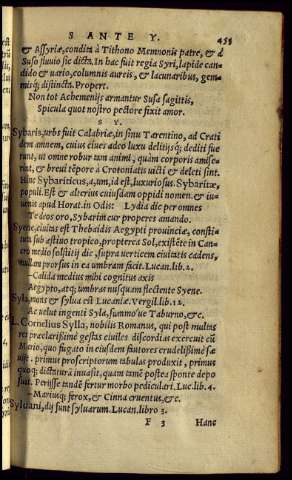 S. ANTE Y. 459
& Assyriæ, condita à Tithono Memnonis patre, & à
Suso fluuio sic dicta. In hac fuit regia Cyri, lapide can
dido & uario, columnis aureis, & lacunaribus, gem-
misq; distincta. Propert.
Non tot Achemenijs armantur Susa sagittis,
Spicula quot nostro pectore fixit amor.
S Y.
Sybaris, urbs fuit Calabriæ, in sinu Tarentino, ad Crati
dem amnem, cuius ciues adeo luxu delitijsq; dediti fue
runt, ut omne robur tam animi, quàm corporis amise
rint, & breui tēpore à Crotoniatis uicti & deleti sint.
Hinc Sybariticus, a, um, id est, luxuriosus. Sybaritæ,
populi. Est & alterius cuiusdam oppidi nomen. & iu-
uenis apud Horat. in Odis: Lydia dic per omnes
Te deos oro, Sybarim cur properes amando.
Syene, ciuitas est Thebaidis Aegypti prouinciæ, consti
tuta sub æstiuo tropico, propterea Sol, existēte in Can
cro medio solstitij die, supra uerticem ciuitatis cadens,
nullam prorsus in ea umbram facit. Lucan. lib. 2.
—Calida medius mihi cognitus axis
Aegypto, atq; umbras nusquam flectente Syene.
Syla, mons & sylua est Lucaniæ. Vergil. lib. 12.
Ac uelut ingenti Syla, summo'ue Taburno, &c.
L. Cornelius Sylla, nobilis Romanus, qui post multas
res præclarissimè gestas ciuiles discordias exercuit cū
Mario, quo fugato in eiusdem fautores crudelissimè sæ
uijt. primus proscriptorum tabulas produxit, primus
quoq; dictaturā inuasit, quam tamē postea sponte depo
suit. Perijsse tandē fertur morbo pediculari. Luc. lib. 4.
—Mariusq; ferox, & Cinna cruentus, &c.
Syluani, dij sunt syluarum. Lucan. libro 3.
F 3 Hunc